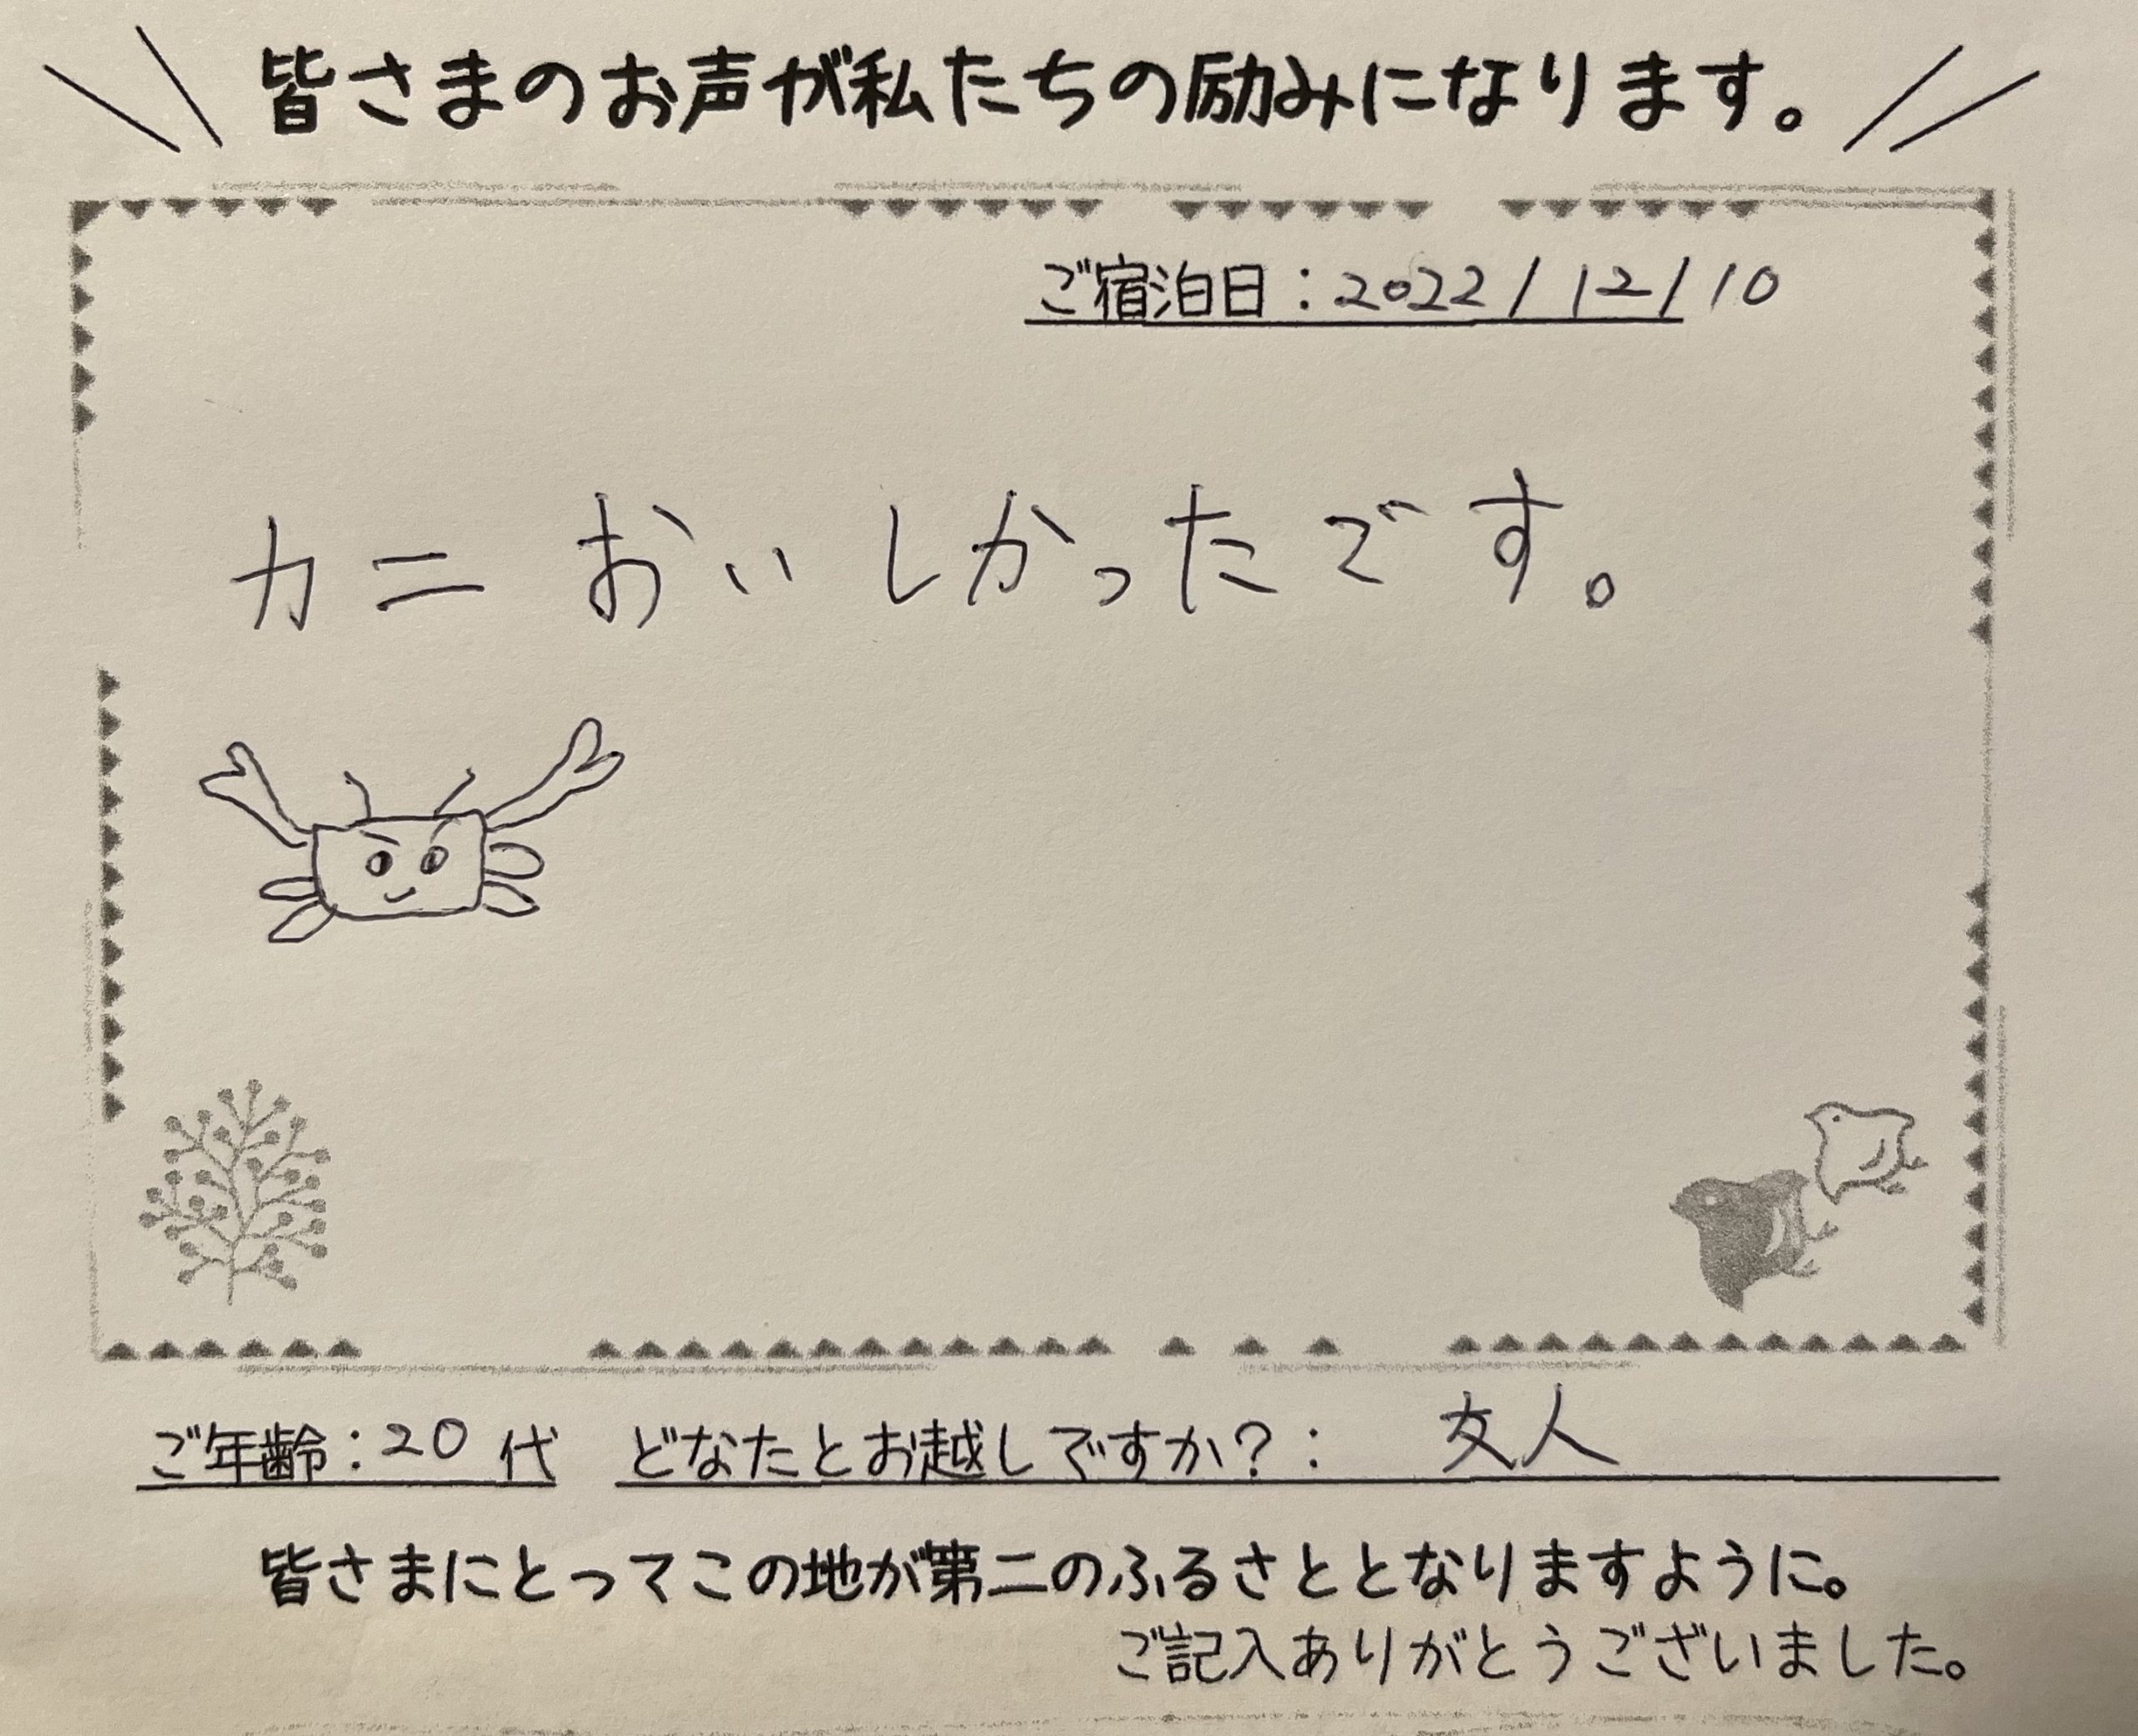 皆さまのお声が私たちの励みになります。
ご宿泊日：2022/12/10
カニ おいしかったです。
ご年齢：20代 どなたとお越しですか？： 友人
皆さまにとってこの地が第二のふるさととなりますように。
ご記入ありがとうございました。